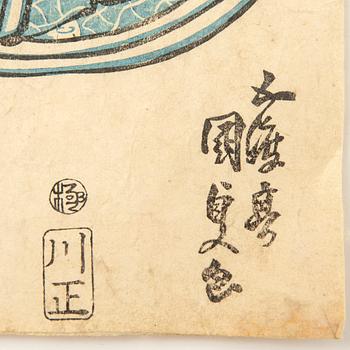 五渡亭
国貞画
極
川正